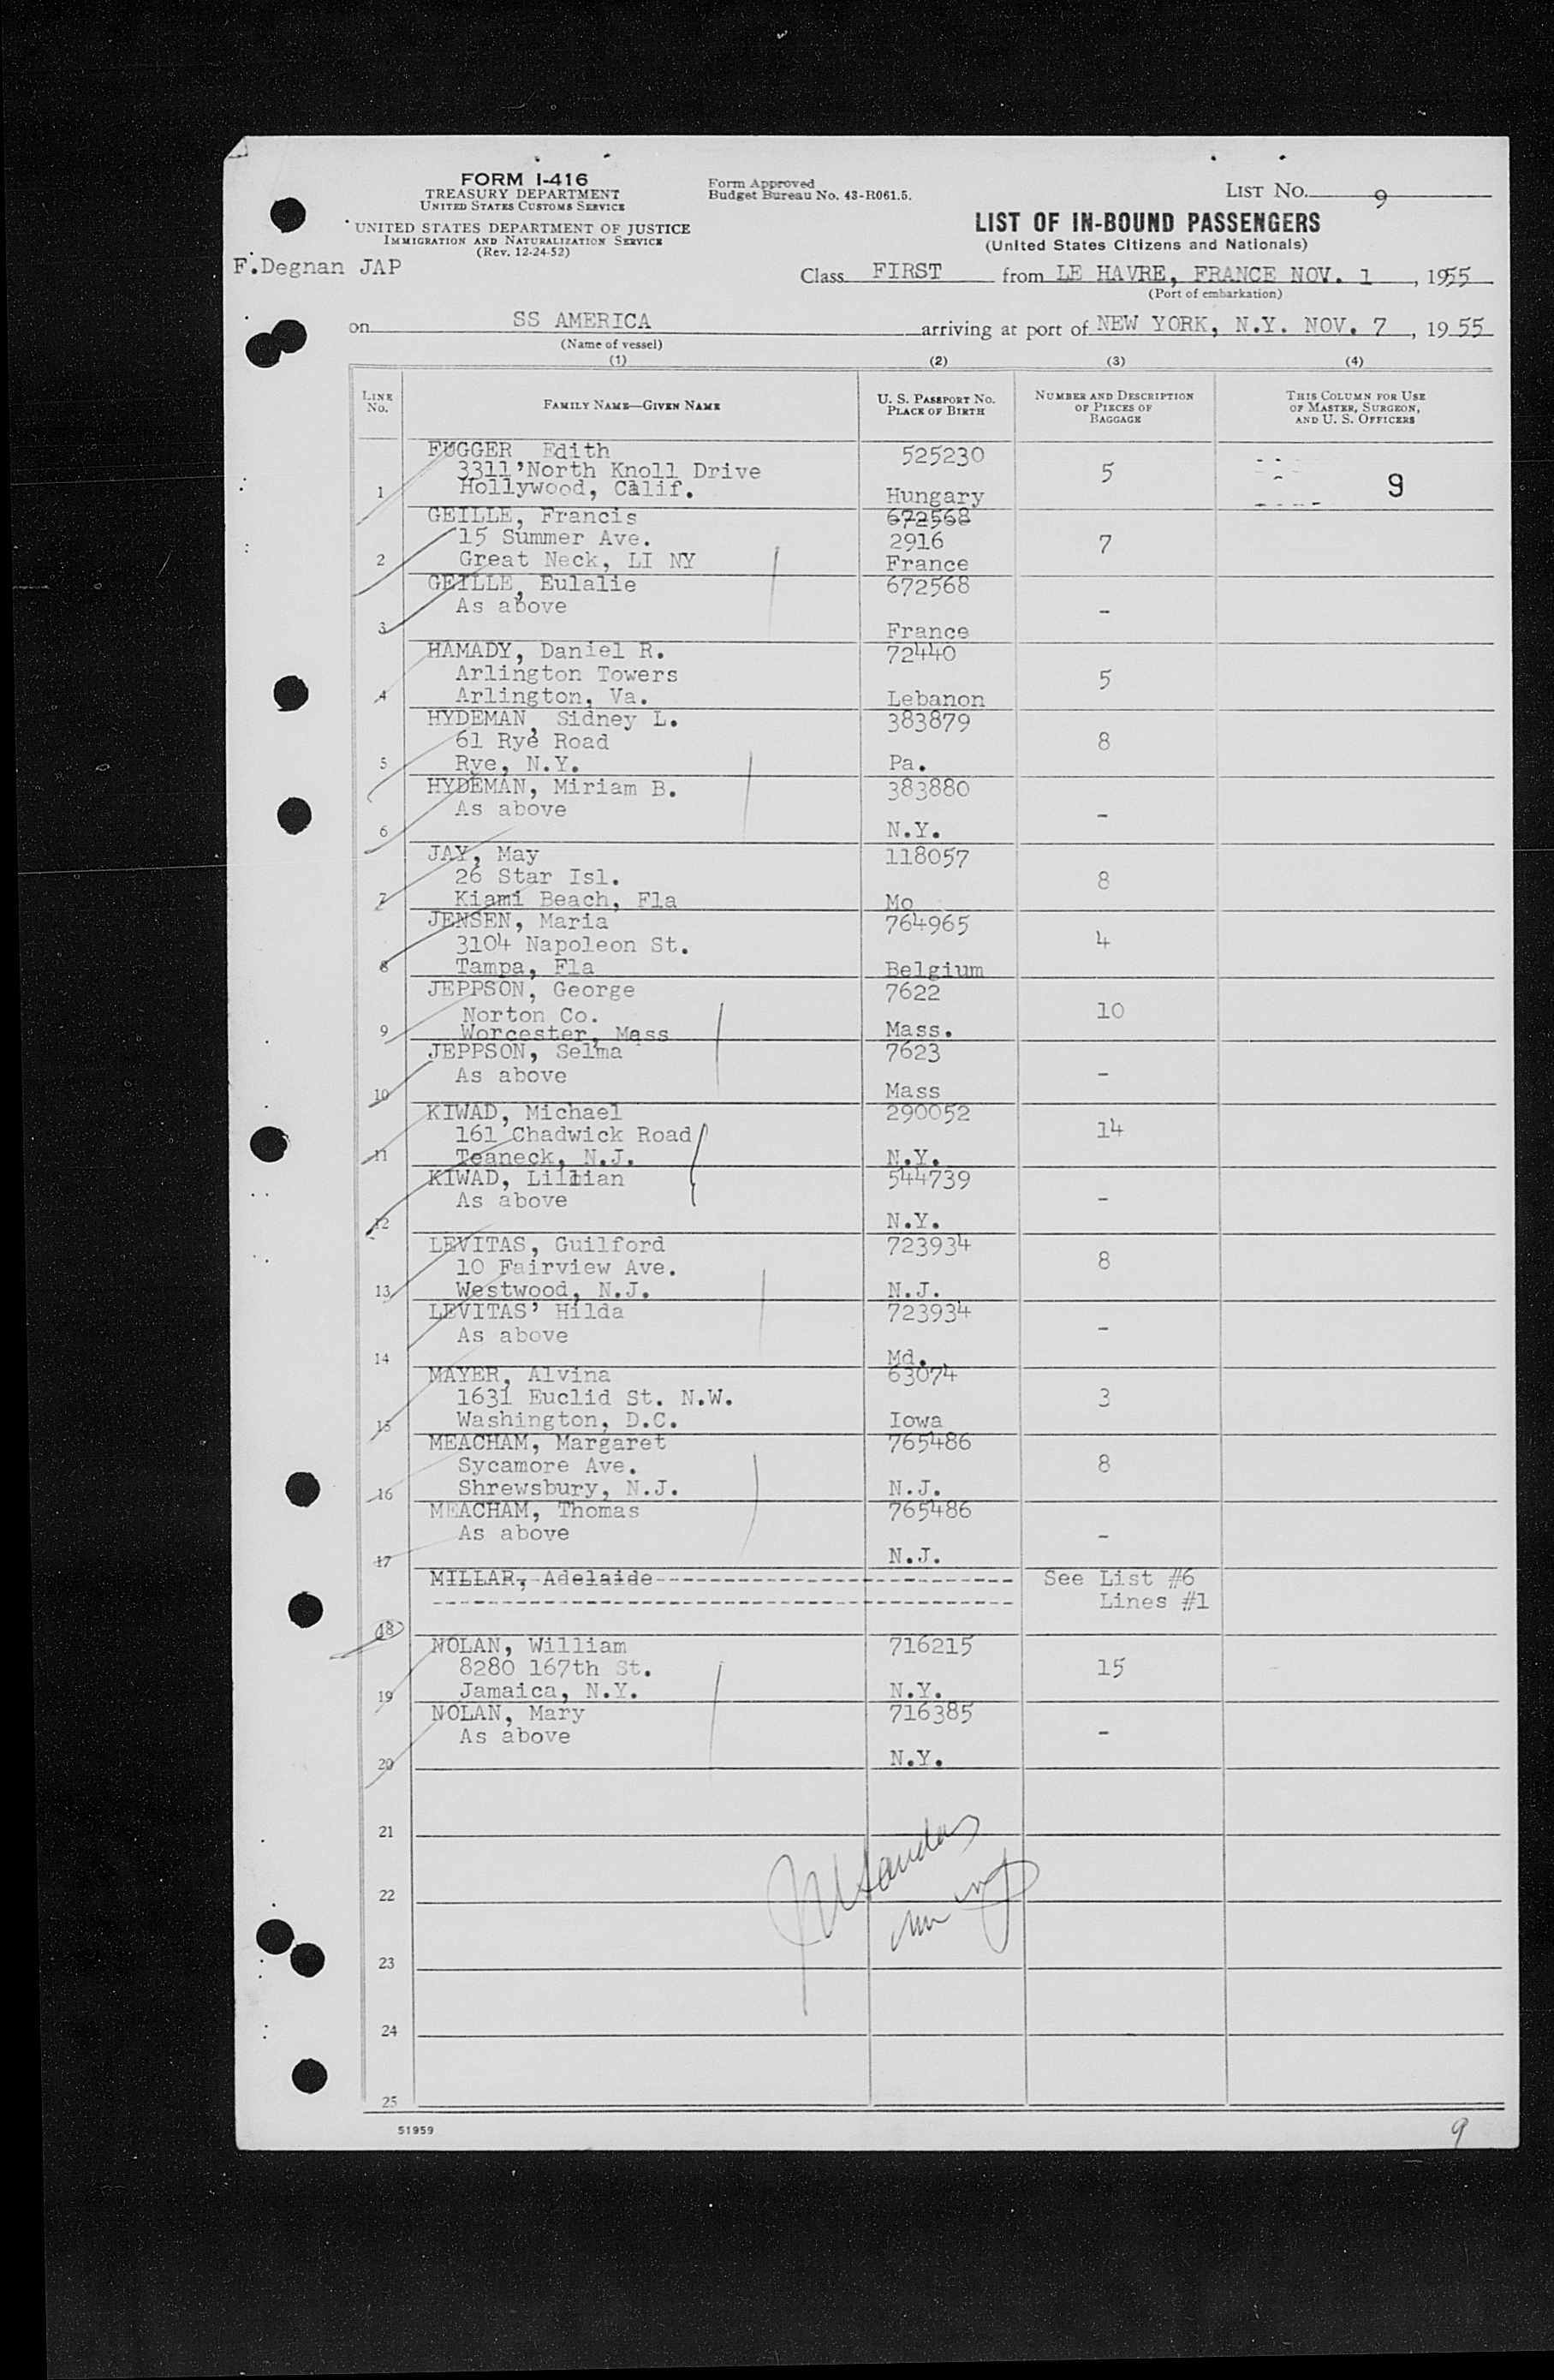 FORM I-416
TREASURY DEPARTMENT
UNITED STATES CUSTOMS SERVICE
UNITED STATES DEPARTMENT OF JUSTICE
IMMIGRATION AND NATURALIZATION SERVICE
(Rev. 12-24-52)
Form Approved
Budget Bureau No. 43-R061.5.
LIST NO. 9
LIST OF IN-BOUND PASSENGERS
(United States Citizens and Nationals)
F.Degnan JAP
Class FIRST from LE HAVRE, FRANCE NOV. 1, 1955
(Port of embarkation)
on SS AMERICA arriving at port of NEW YORK, N.Y. NOV. 7, 1955
(Name of vessel)
(1) (2) (3) (4)
LINE NO. FAMILY NAME—GIVEN NAME U. S. PASSPORT NO. PLACE OF BIRTH NUMBER AND DESCRIPTION OF PIECES OF BAGGAGE THIS COLUMN FOR USE OF MASTER, SURGEON, AND U. S. OFFICERS
FUGGER Edith 525230
3311'North Knoll Drive 5
1 Hollywood, Calif. Hungary 9
GEILLE, Francis 672568
15 Summer Ave. 2916 7
2 Great Neck, LI NY France
GEILLE, Eulalie 672568
As above -
3 France
HAMADY, Daniel R. 72440
Arlington Towers 5
4 Arlington, Va. Lebanon
HYDEMAN, Sidney L. 383879
61 Rye Road 8
5 Rye, N.Y. Pa.
HYDEMAN, Miriam B. 383880
As above -
6 N.Y.
JAY, May 118057
26 Star Isl. 8
7 Kiami Beach, Fla Mo
JENSEN, Maria 764965
3104 Napoleon St. 4
8 Tampa, Fla Belgium
JEPPSON, George 7622
Norton Co. 10
9 Worcester, Mass Mass.
JEPPSON, Selma 7623
As above -
10 Mass
KIWAD, Michael 290052
161 Chadwick Road 14
11 Teaneck, N.J. N.Y.
KIWAD, Lillian 544739
As above -
12 N.Y.
LEVITAS, Guilford 723934
10 Fairview Ave. 8
13 Westwood, N.J. N.J.
LEVITAS' Hilda 723934
As above -
14 Md.
MAYER, Alvina 63074
1631 Euclid St. N.W. 3
15 Washington, D.C. Iowa
MEACHAM, Margaret 765486
Sycamore Ave. 8
16 Shrewsbury, N.J. N.J.
MEACHAM, Thomas 765486
As above -
17 N.J.
MILLAR, Adelaide See List #6
Lines #1
18
NOLAN, William 716215
8280 167th St. 15
19 Jamaica, N.Y. N.Y.
NOLAN, Mary 716385
As above -
20 N.Y.
21
22
23
24
25
51959
9